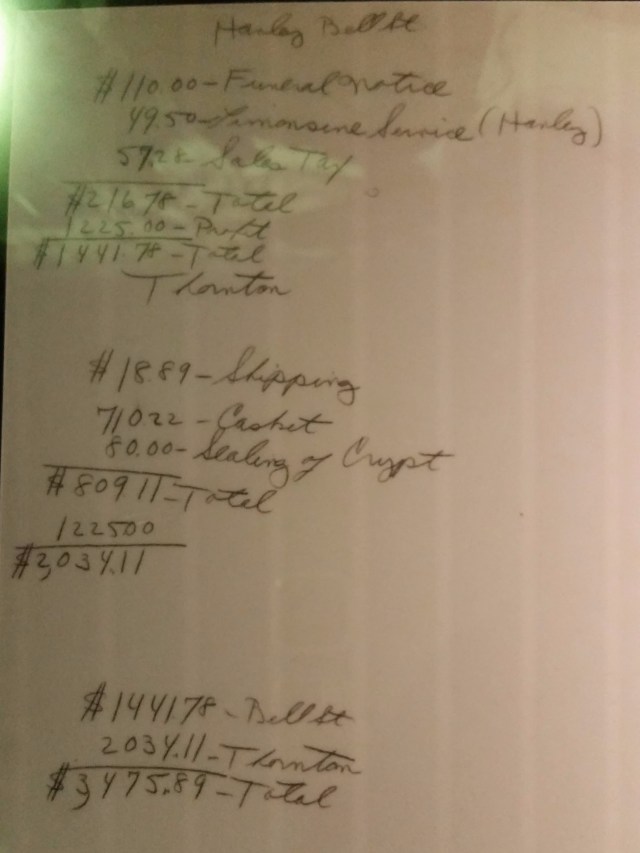 Hanley Bell St
$110.00 - Funeral Notice
49.50 - Limonsine Service (Hanley)
57.28 Sales Tax
$216.78 - Total
1225.00 - Profit
$1441.78 - Total
Thornton
$18.89 - Shipping
710 22 - Casket
80.00 - Sealing of Crypt
$809 11 - Total
1225 00
$2,034.11
$1441 78 - Bell St
2034.11 - Thornton
$3,475.89 - Total